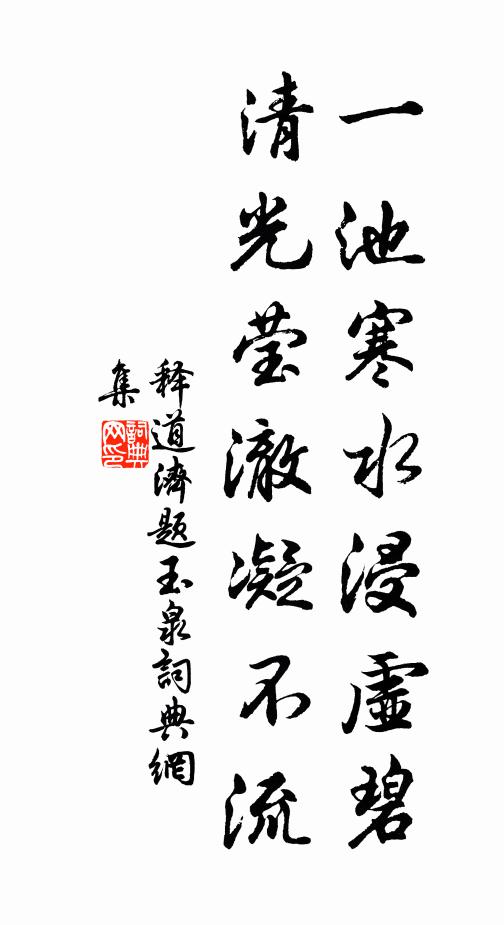 一池寒水浸虛碧
清光莹澈凝不流
释道濟题玉泉詞典網
集
詞典网印